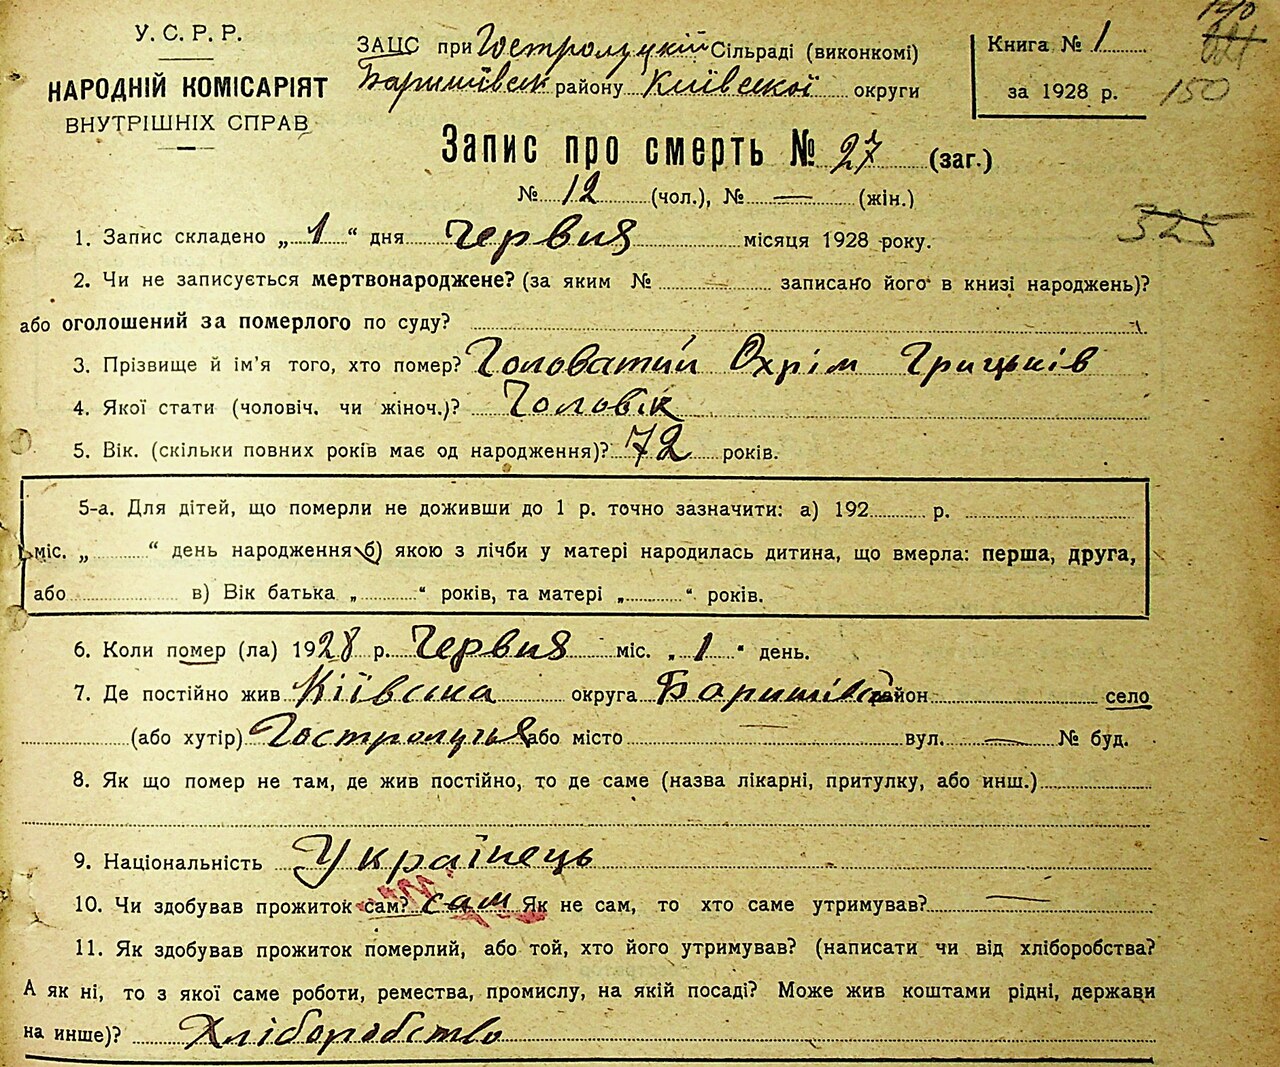 У. С. Р. Р.
НАРОДНІЙ КОМІСАРІЯТ
ВНУТРІШНІХ СПРАВ
ЗАЦС при Гостролуцкій Сільраді (виконкомі)
Баришівськ району Київської округи
Книга № 1
за 1928 р.
150
Запис про смерть № 27 (заг.)
№ 12 (чол.), № — (жін.)
325
1. Запис складено „ 1 “ дня Червня місяця 1928 року.
2. Чи не записується мертвонароджене? (за яким № записано його в книзі народжень)?
або оголошений за померлого по суду?
3. Прізвище й ім'я того, хто помер? Головатий Охрім Грицьків
4. Якої стати (чоловіч. чи жіноч.)? Чоловік
5. Вік. (скільки повних років має од народження)? 72 років.
5-а. Для дітей, що померли не доживши до 1 р. точно зазначити: а) 192 р.
міс. „ “ день народження б) якою з лічби у матері народилась дитина, що вмерла: перша, друга,
або в) Вік батька „ “ років, та матері „ “ років.
6. Коли помер (ла) 1928 р. Червня міс. „ 1 “ день.
7. Де постійно жив Кіівська округа Баришівск район село
(або хутір) Гостролуччя або місто вул. — № буд.
8. Як що помер не там, де жив постійно, то де саме (назва лікарні, притулку, або инш.)
9. Національність Українець
10. Чи здобував прожиток сам? сам Як не сам, то хто саме утримував? —
11. Як здобував прожиток померлий, або той, хто його утримував? (написати чи від хліборобства?
А як ні, то з якої саме роботи, ремества, промислу, на якій посаді? Може жив коштами рідні, держави
на инше)? Хліборобство